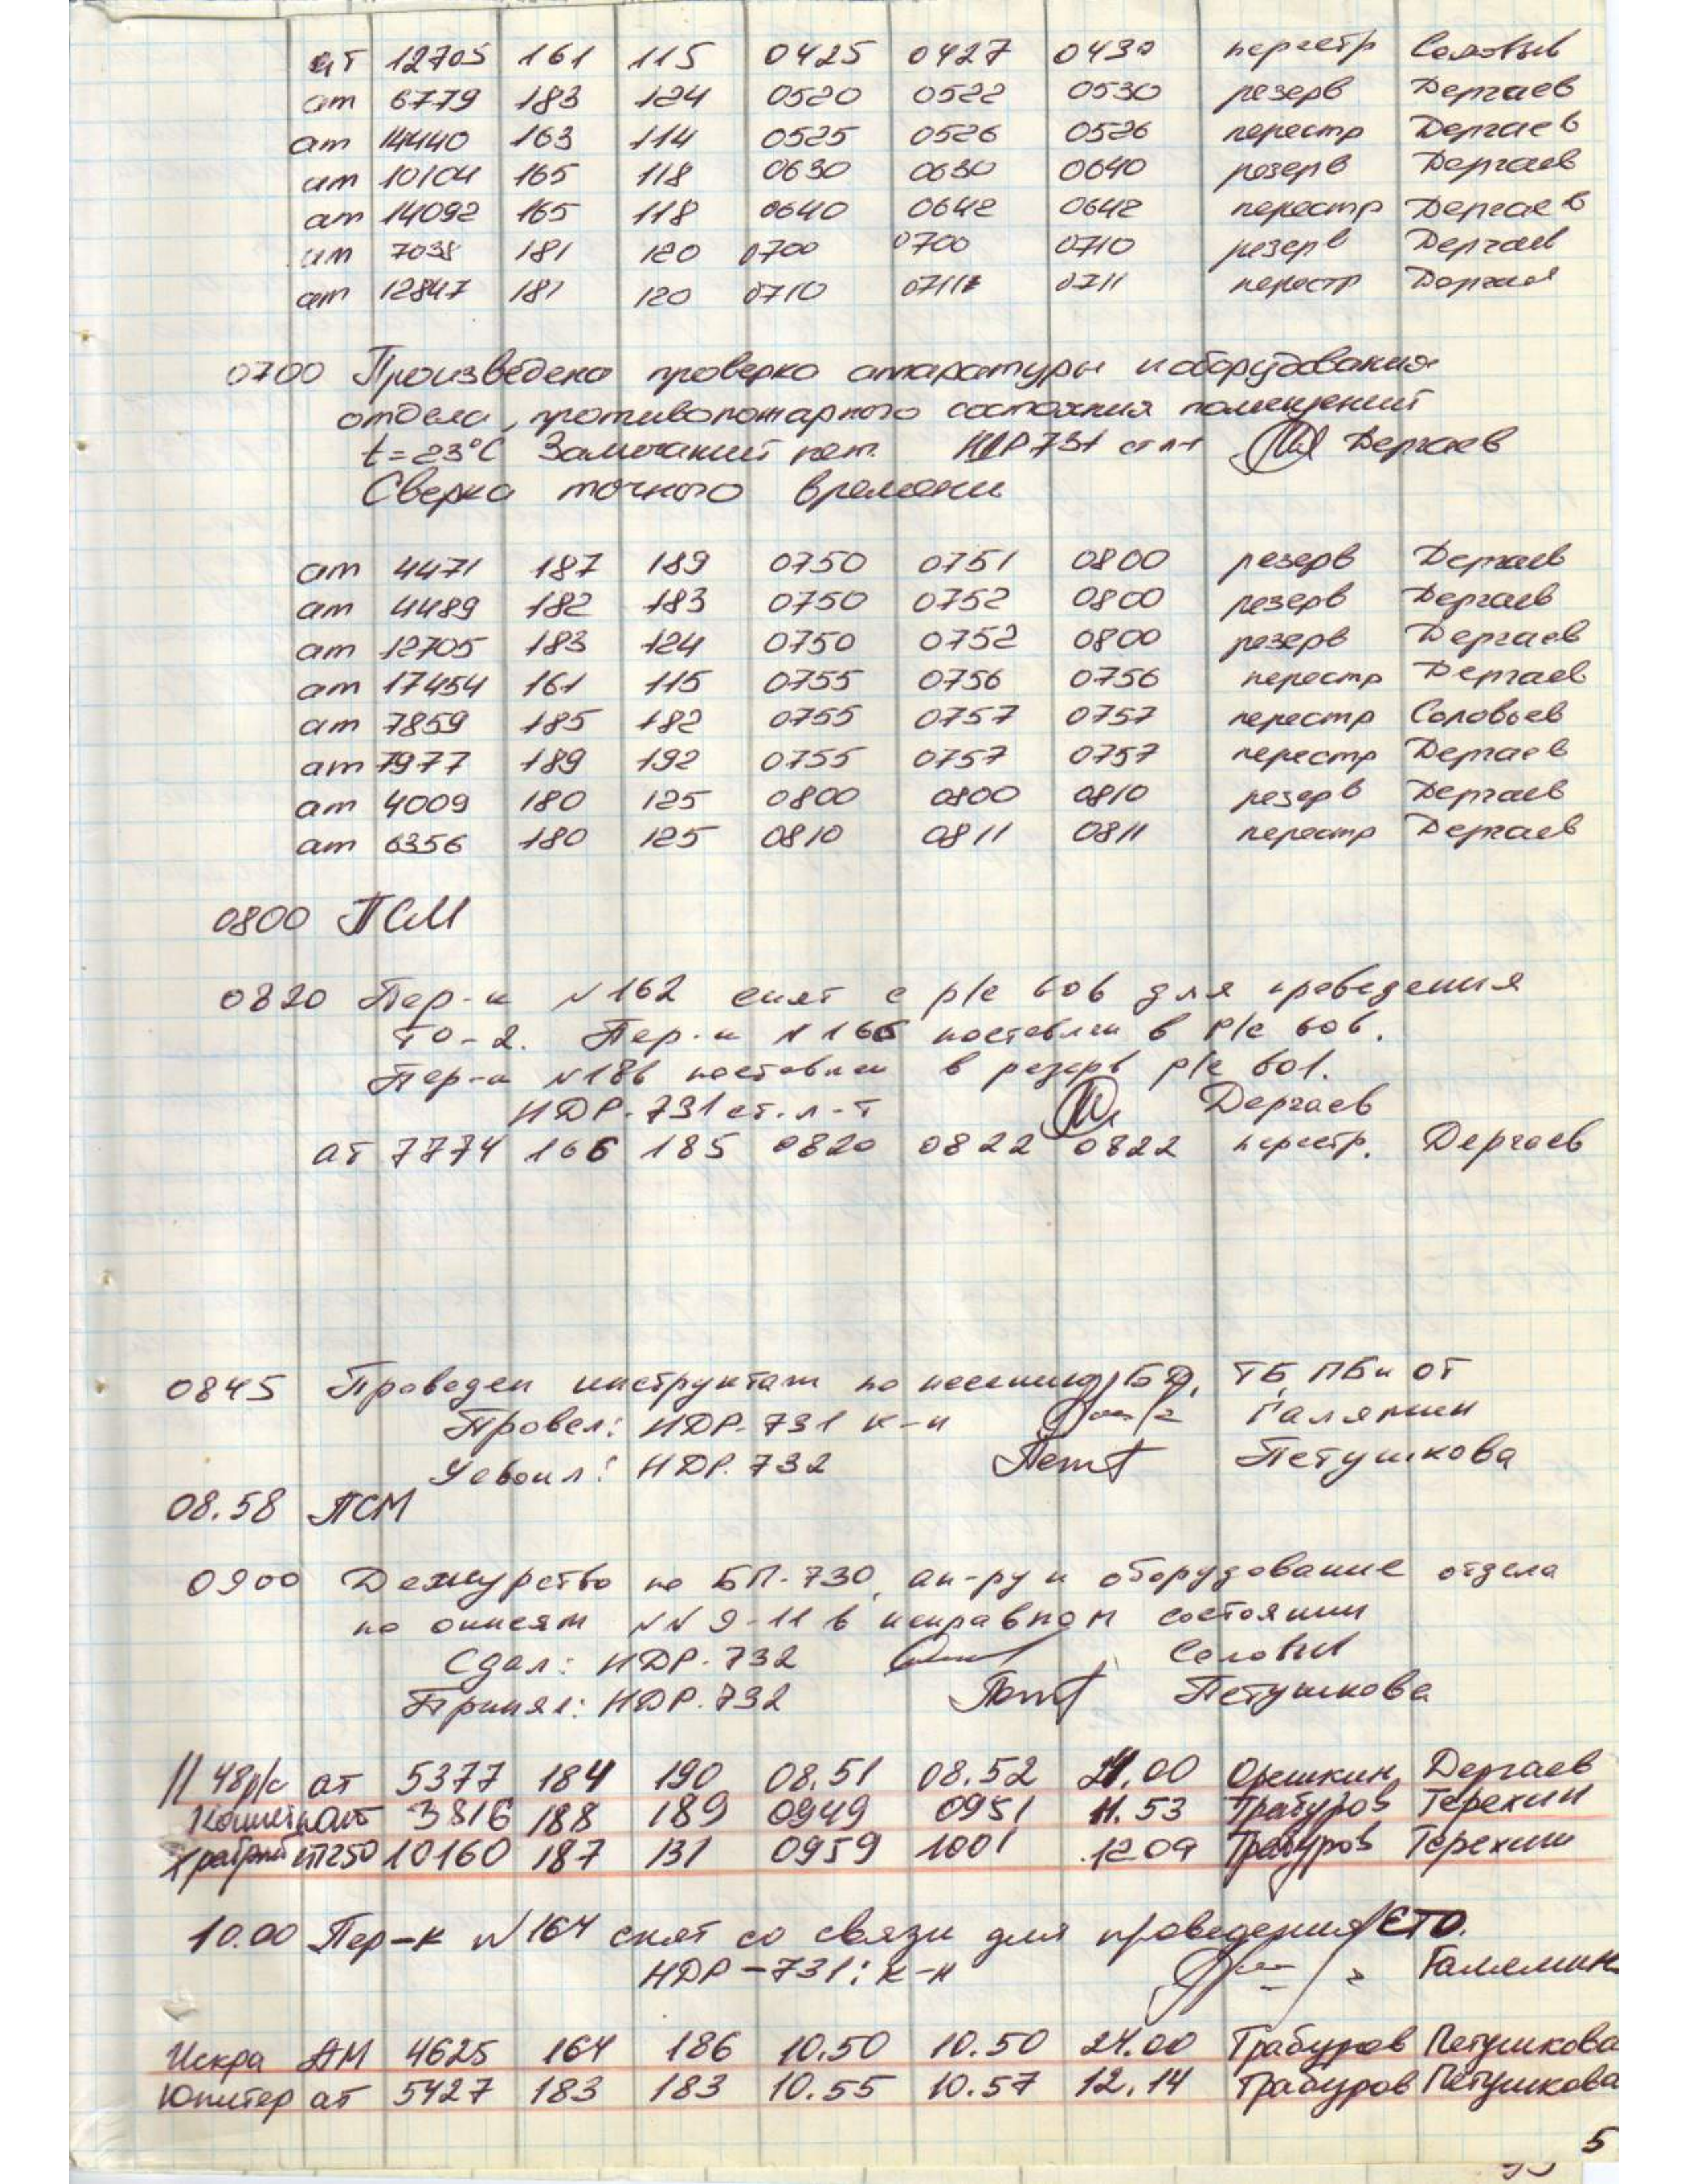 ат 12705 161 115 0425 0427 0430 перестр Соловьев
ат 6779 183 124 0520 0522 0530 резерв Дергаев
ат 14440 163 114 0525 0526 0526 перестр Дергаев
ат 10104 165 118 0630 0630 0640 резерв Дергаев
ат 14092 165 118 0640 0642 0642 перестр Дергаев
ат 7038 181 120 0700 0700 0710 резерв Дергаев
ат 12847 181 120 0710 0711 0711 перестр Дергаев
0700 Произведена проверка аппаратуры и оборудования
отдела, противопожарного состояния помещений
t=23°C Замечаний нет. НДР 731 ст л-т Дергаев
Сверка точного времени
ат 4471 187 189 0750 0751 0800 резерв Дергаев
ат 4489 182 183 0750 0752 0800 резерв Дергаев
ат 12705 183 124 0750 0752 0800 резерв Дергаев
ат 17454 161 115 0755 0756 0756 перестр Дергаев
ат 7859 185 182 0755 0757 0757 перестр Соловьев
ат 7977 189 192 0755 0757 0757 перестр Дергаев
ат 4009 180 125 0800 0800 0810 резерв Дергаев
ат 6356 180 125 0810 0811 0811 перестр Дергаев
0800 ПСМ
0820 Пер-к №162 снят с р/с 606 для проведения
ТО-2. Пер-к №166 поставлен в р/с 606.
Пер-к №186 поставлен в резерв р/с 601.
НДР-731 ст. л-т Дергаев
ат 7774 166 185 0820 0822 0822 перестр. Дергаев
0845 Проведен инструктаж по несению БД, ТБ, ПБ и ОТ
Провел: НДР-731 к-н Галямин
Усвоил: НДР-732 Петушкова
08.58 ПСМ
0900 Дежурство по БП-730, ап-ру и оборудование отдела
по описям №№ 9-11 в исправном состоянии
Сдал: НДР-732 Соловьев
Принял: НДР-732 Петушкова
// 48 р/с ат 5377 184 190 08.51 08.52 21.00 Орешкин Дергаев
ат 3816 188 189 0949 0951 11.53 Трабуров Терехин
Храбрый 10160 187 131 0959 1001 12 09 Трабуров Терехин
10.00 Пер-к №164 снят со связи для проведения ЕТО.
НДР-731: к-н Галямин
Искра АМ 4625 164 186 10.50 10.50 24.00 Трабуров Петушкова
Юпитер ат 5427 183 183 10.55 10.57 12.14 Трабуров Петушкова
5